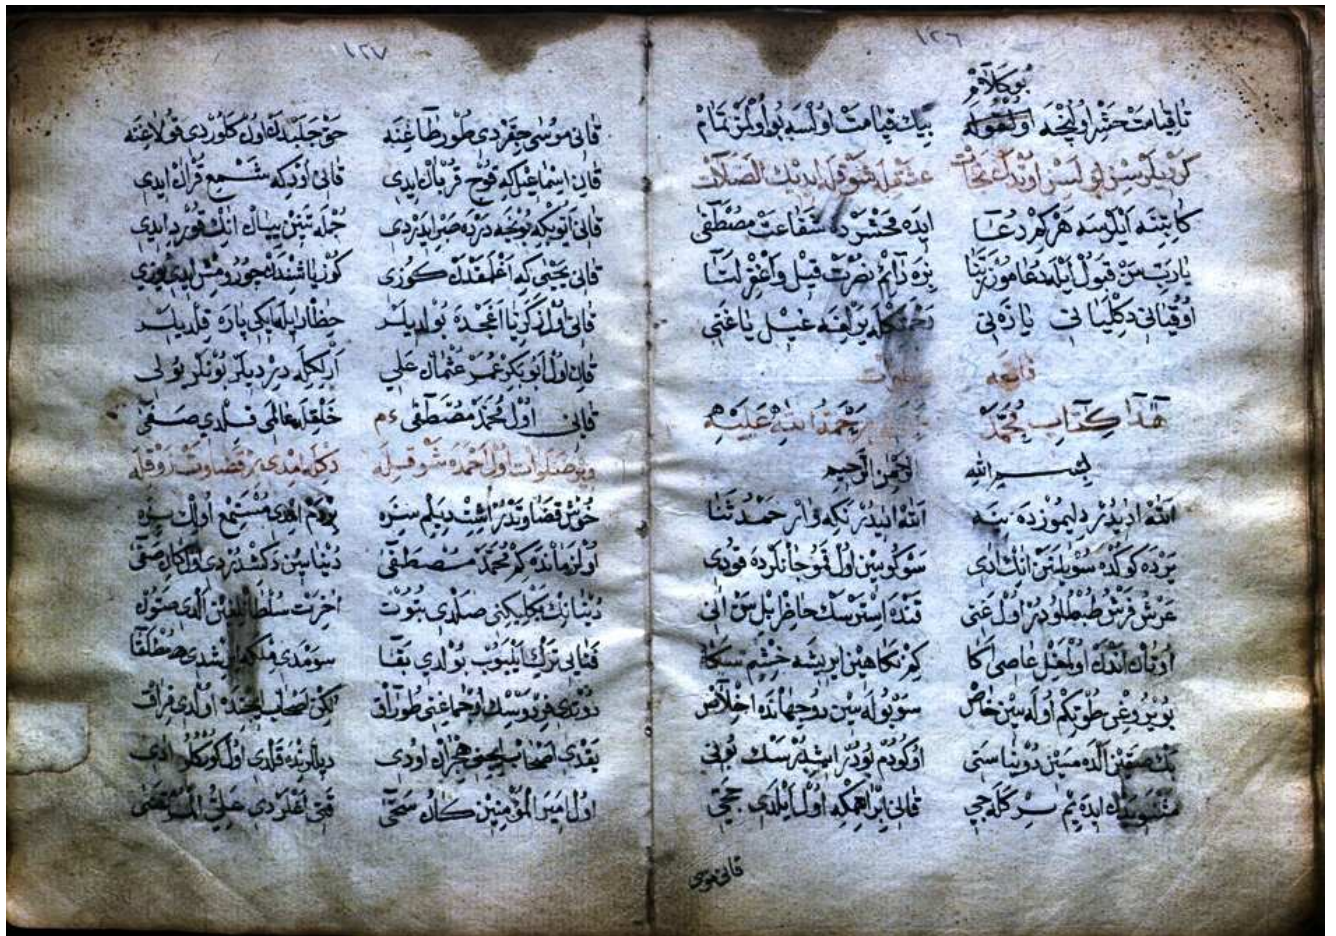 ١٢٦
بو كلام
تا قيامت حشر اولنجه اولغوله بيك قيامت اولسه بو اولمز تمام
كر ديلرسز بولسز اوددن نجات عشقله شوقله ايدنك الصلات
كاتبنه ايلرسه هر كم دعا ايده محشرده شفاعت مصطفى
يا رب سن قبول ايله دعاموز ربنا بزه دائم نصرت قيل واغفر لنا
اوقياني دكلياني يازاني رحمتكله يرلغه غيل يا غني
فاتحه
هذا كتاب محمد رحمة الله عليه
بسم الله الرحمن الرحيم
الله اديدر دليموزده ينه الله ايديدر نكه وار حمد ثنا
يرده كوكده سويلنن انك ادى سوكوسين اول قمو جانلرده قودى
عرش فرش طبطلودر اول غنى قنده استرسك حاظر بل سن انى
اوتان اندن اولمغل عاصى اكا كم نكاهين ايريشه خشم سكا
بويروغى طوتكم اوله سين خاص سويوله سين دو جهانده اخلاص
صقين الدمسين دونيا سنى اوكودم بودر اشدرسك بونى
ايده يم بر كله جى قانى ابراهيمكه اول ايلدى حجى
قانى موسى
١٢٧
قانى موسى چقردى طور طاغنه حق جلبدن اون كلوردى قولاغنه
قانى اسماعيل كه قوچ قربان ايدى قانى اودكه شمع قران ايدى
قانى ايوبكه بونجه درده صبر ايدردى جمله تنين ييان انك قورد ايدى
قانى يحيى كه اغلمقدن كوزى كوز ياشندن چورومش ايدى يوزى
قانى اول زكريا اغجده بولديلر حظار ايله ايكى پاره قلديلر
قانى اول ابوبكر عمر عثمان على ارلكله درديلر بونلر يولى
قانى اول محمد مصطفى ءم خلقله عالمى قلدى صفى
ويرصلوات اول احمده شوقله دكله ايمدى بر قضا وندر وقله
خوش قضا وندر اشت ديلم سزه بردم ايمدى مستمع اولك بزه
اول زمانده كم محمد مصطفى دنيا سين دكشدردى اول كان صفى
دنيانك بكليكنى صلدى بتوت اخرت سلطانلغين الدى صتون
فنايى ترك ايليوب بولدى بقا سومدى ملكه ايرشدى مطلقا
دوتدى فردوسك اوچماغنى طوراق لكن اصحاب ايچنده اولدى فراق
يقدى اصحاب ايچنى هجران اودى ديللرنده قلدى اول كوركلو ادى
اول امير المؤمنين كان سخى قتى اغلردى على المرتضى